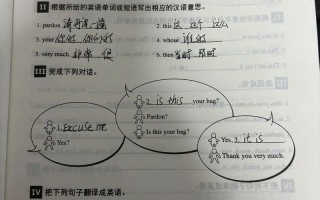 II 根据所给的英语单词或短语写出相应的汉语意思。
1. pardon 请再说一遍 2. this 这 这个
3. your 你的 你们的 4. whose 谁的
5. very much 非常 很 6. then 当时 那时
III 完成下列对话。
1. Excuse me
Yes?
2. is this your bag?
Pardon?
Is this your bag?
Yes. 3. it is
Thank you very much.
IV 把下列句子翻译成英语。